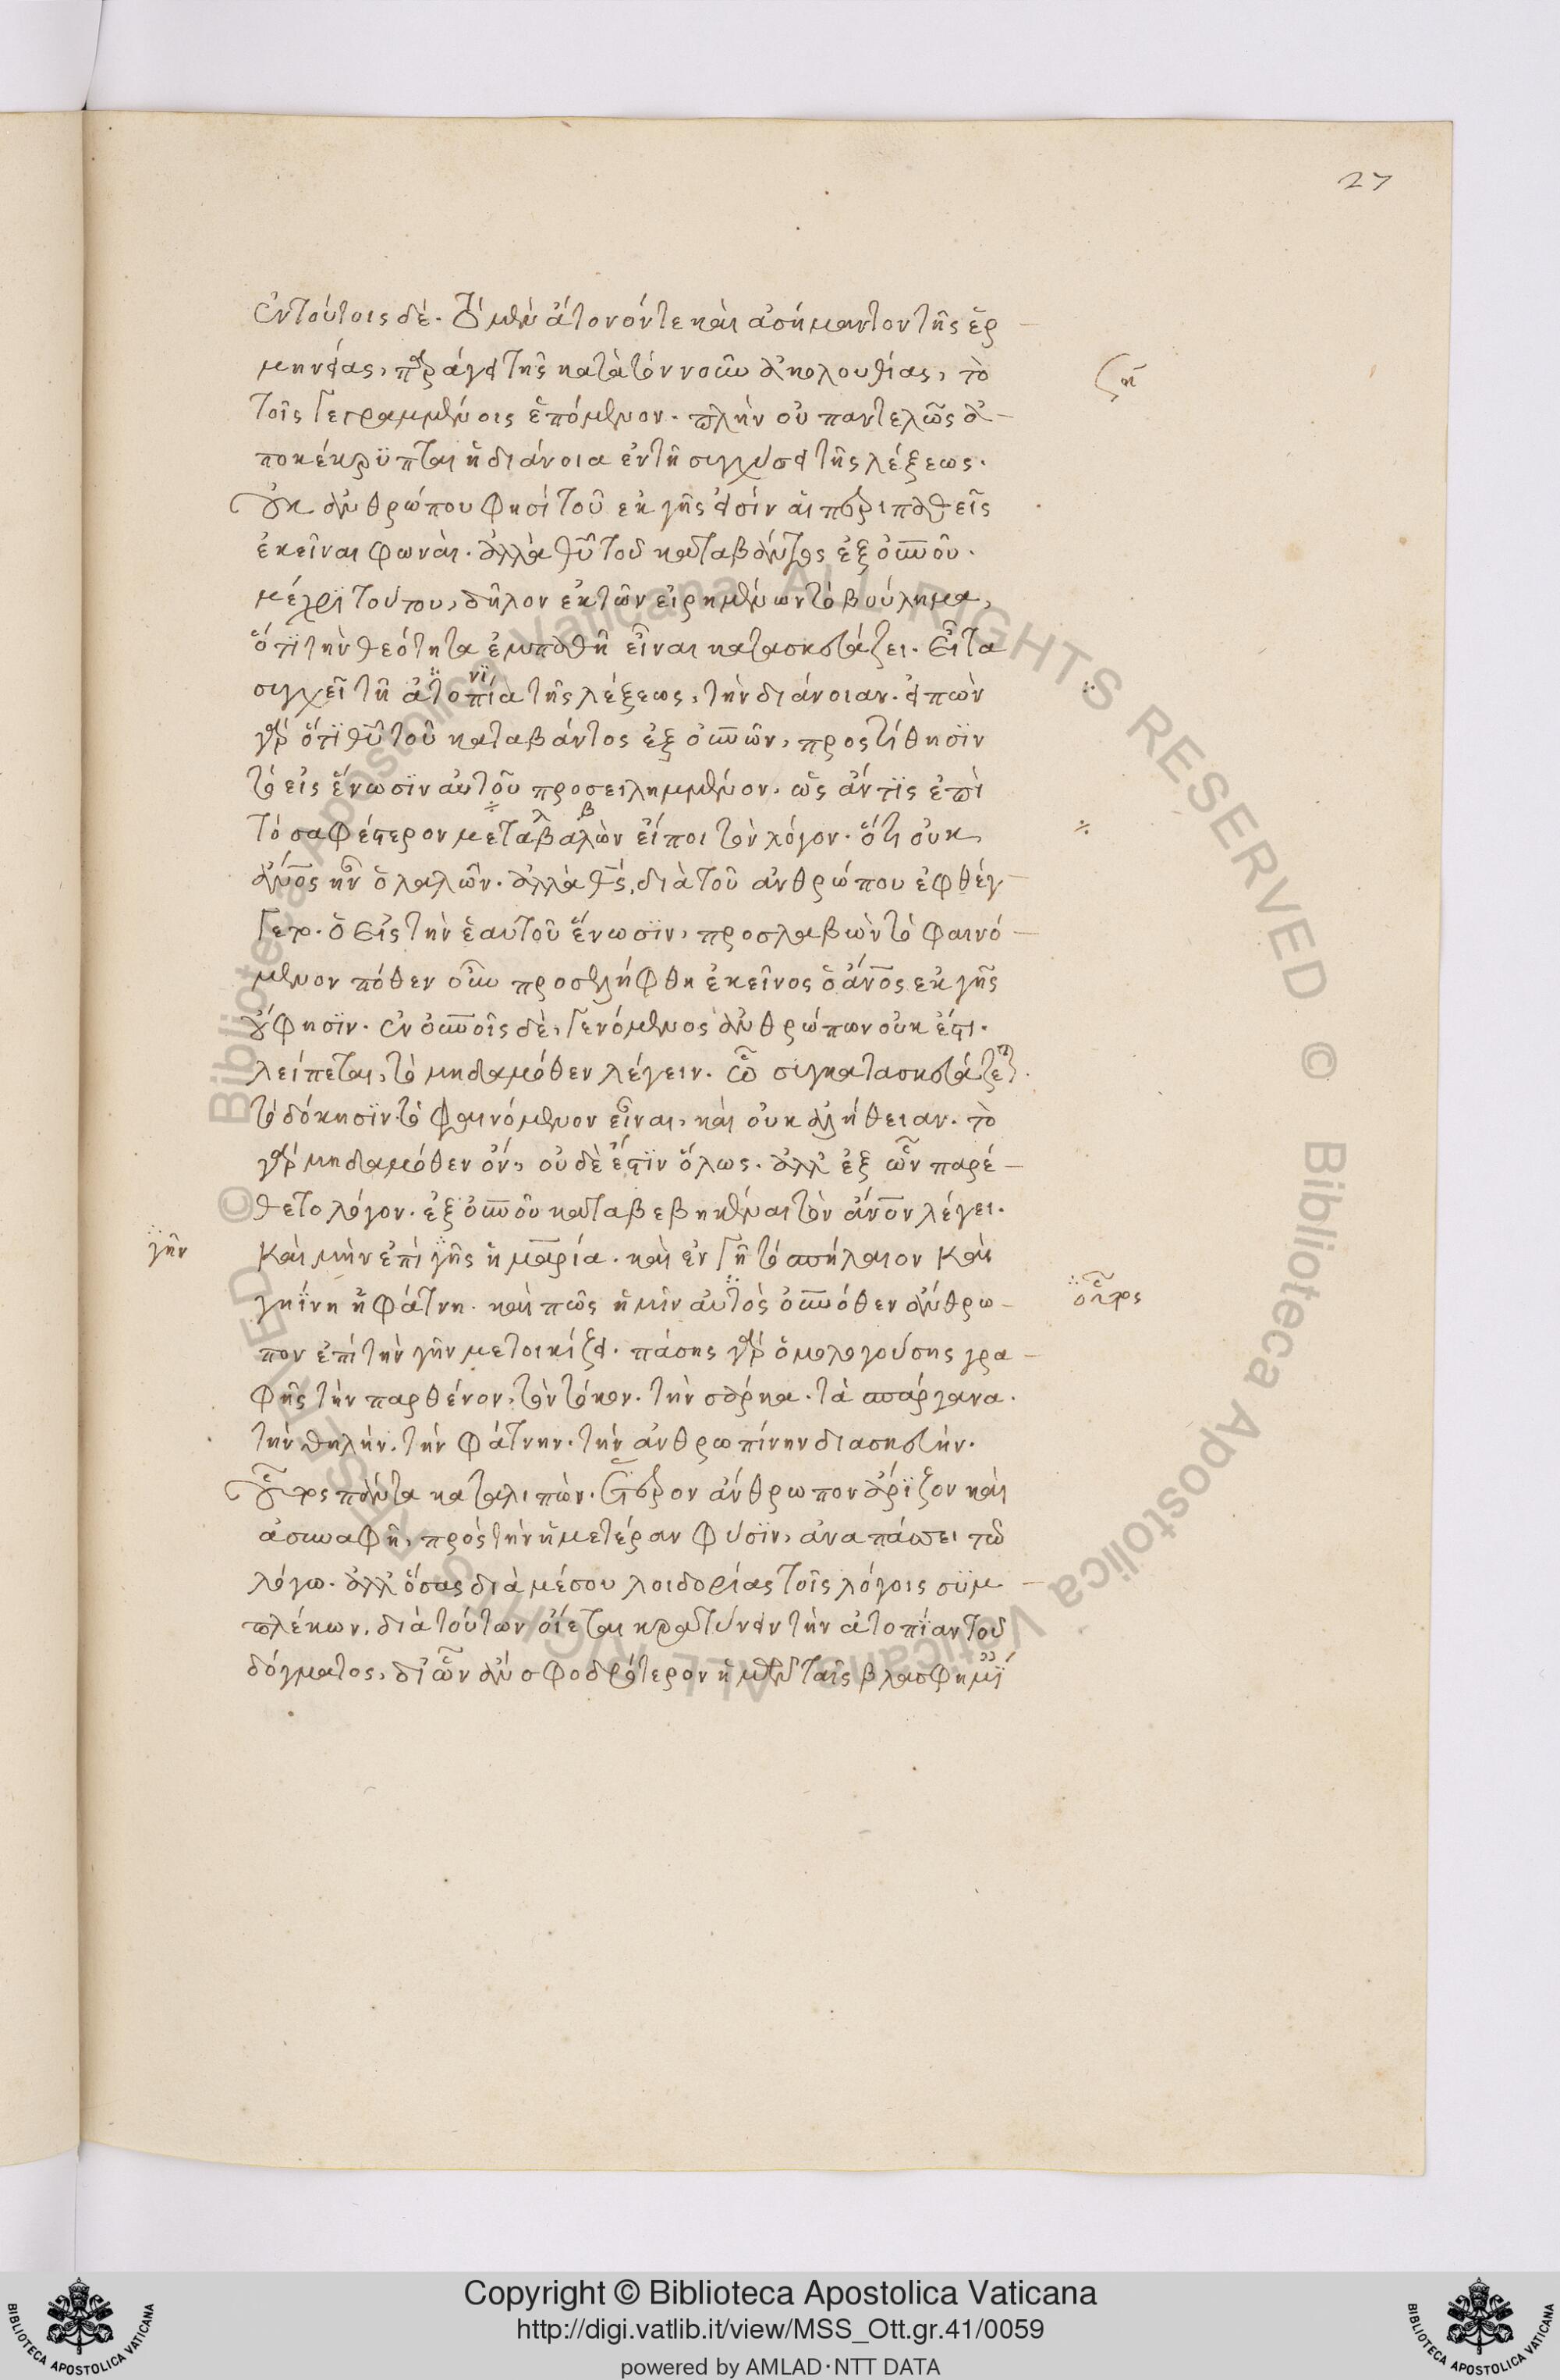 27
ἐν τούτοις δέ. τὸ μὲν ἄτονόν τε καὶ ἀσήμαντον τῆς ἑρ
μηνείας, παράγει τῆς κατὰ τὸν νοῦν ἀκολουθίας, τὸ
ζη
τοῖς γεγραμμένοις ἑπόμενον. πλὴν οὐ παντελῶς ἀ-
ποκέκρϋπται ἡ διάνοια ἐν τῆ συγχύσει τῆς λέξεως.
οὐκ ἀνθρώπου φησὶ τοῦ ἐκ γῆς εἰσὶν αἱ περιπαθεῖς
ἐκεῖναι φωναὶ. ἀλλὰ θῦ τοῦ καταβάντος ἐξ οὐνοῦ.
μέχρϊ τούτου, δῆλον ἐκ τῶν εἰρημένων τὸ βούλημα,
ὅτϊ τὴν θεότητα ἐμπαθῆ εἶναι κατασκευάζει. εἶτα
συγχεῖ τῆ ἀτοπία τῆς λέξεως, τὴν διάνοιαν. εἰπὼν
νί
γὰρ ὅτϊ θῦ τοῦ καταβάντος ἐξ οὐνῶν, προστίθησϊν
τὸ εἰς ἕνωσϊν αὐτοῦ προσειλημμένον. ὡς ἄν τϊς ἐπὶ
τὸ σαφέστερον μεταβαλὼν εἴποι τὸν λόγον. ὅτι οὐκ
λ β
ἄνος ἦν ὁ λαλῶν. ἀλλὰ θς, διὰ τοῦ ἀνθρώπου ἐφθέγ-
γετο. ὁ εἰς τὴν ἑαυτοῦ ἕνωσϊν, προσλαβὼν τὸ φαινό-
μενον πόθεν οὖν προσελήφθη ἐκεῖνος ὁ ἄνος ἐκ γῆς
οὔ φησϊν. ἐν οὐνοῖς δὲ, γενόμενος ἀνθρώπων οὐκ ἔστι.
λείπεται, τὸ μηδαμόθεν λέγειν. ὧ συγκατασκευάζεται
τὸ δόκησϊν τὸ φαινόμενον εἶναι, καὶ οὐκ ἀλήθειαν. τὸ
γὰρ μηδαμόθεν ὄν, οὐδὲ ἔστϊν ὅλως. ἀλλ' ἐξ ὧν παρέ-
θετο λόγον. ἐξ οὐνοῦ καταβεβηκέναι τὸν ἄνον λέγει.
γῆν
καὶ μὴν ἐπὶ γῆς ἡ μαρία. καὶ ἐν γῆ τὸ σπήλαιον καὶ
γηΐνη ἡ φάτνη. καὶ πῶς ἡμῖν αὐτὸς οὐνόθεν ἄνθρω-
οὗτος
πον ἐπὶ τὴν γῆν μετοικίζει. πάσης γὰρ ὁμολογούσης γρα-
φῆς τὴν παρθένον, τὸν τόκον. τὴν σάρκα. τὰ σπάργανα.
τὴν θηλήν. τὴν φάτνην. τὴν ἀνθρωπίνην διασκευήν.
οὗτος πάντα καταλιπὼν. ἕτερον ἄνθρωπον ἀρίζον καὶ
ἀσυναφῆ, πρὸς τὴν ἡμετέραν φύσϊν, ἀναπάττει τῶ
λόγω. ἀλλ' ὅσας διὰ μέσου λοιδορίας τοῖς λόγοις σϋμ-
πλέκων. διὰ τούτων οἴεται κρατύνειν τὴν ἀτοπίαν τοῦ
δόγματος, δι' ὧν ἂν σφοδρότερον ἡμῶν ταῖς βλασφημί
Copyright © Biblioteca Apostolica Vaticana
http://digi.vatlib.it/view/MSS_Ott.gr.41/0059
powered by AMLAD·NTT DATA
BIBLIOTECA APOSTOLICA VATICANA
BIBLIOTECA APOSTOLICA VATICANA
© Biblioteca Apostolica Vaticana ALL RIGHTS RESERVED © Biblioteca Apostolica Vaticana ALL RIGHTS RESERVED